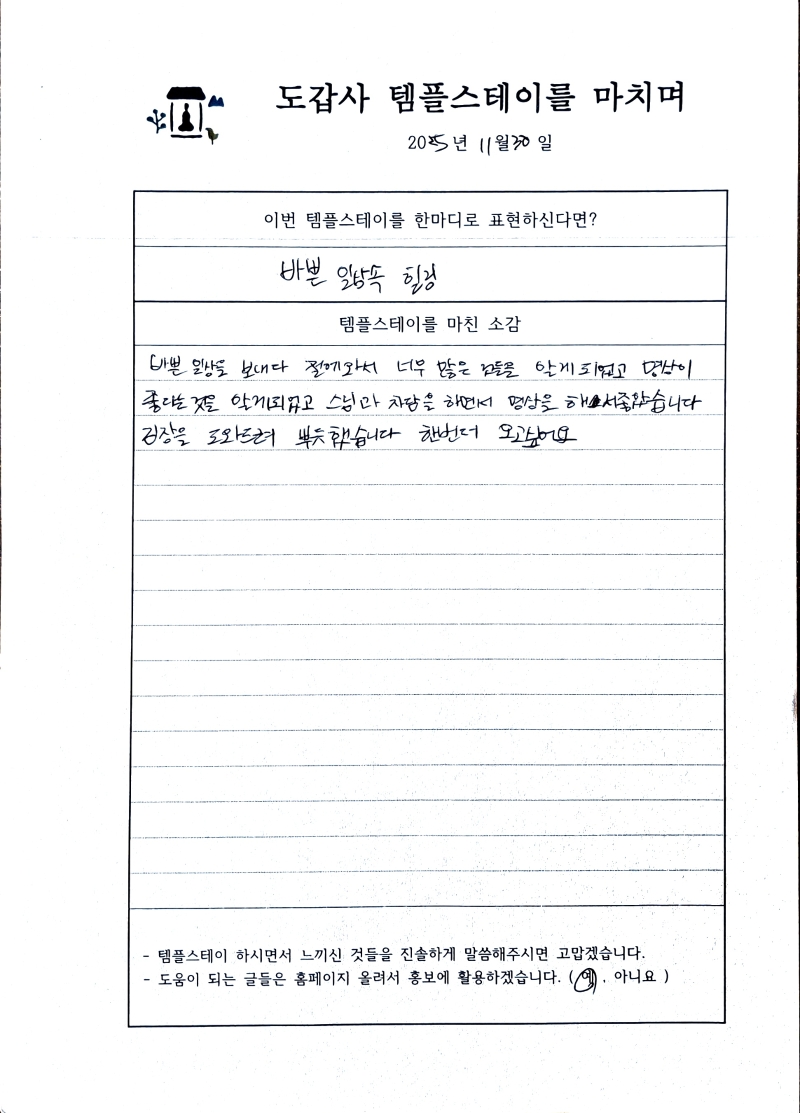 도갑사 템플스테이를 마치며
2025년 11월 30일
이번 템플스테이를 한마디로 표현하신다면?
바쁜 일상속 힐링
템플스테이를 마친 소감
바쁜 일상을 보내다 절에와서 너무 많은 것들을 알게되었고 명상이
좋다는것을 알게되었고 스님과 차담을 하면서 명상을 해서좋았습니다
김장을 도와드려 뿌듯했습니다 한번더 오고싶어요
- 템플스테이 하시면서 느끼신 것들을 진솔하게 말씀해주시면 고맙겠습니다.
- 도움이 되는 글들은 홈페이지 올려서 홍보에 활용하겠습니다. ( 예 , 아니요 )